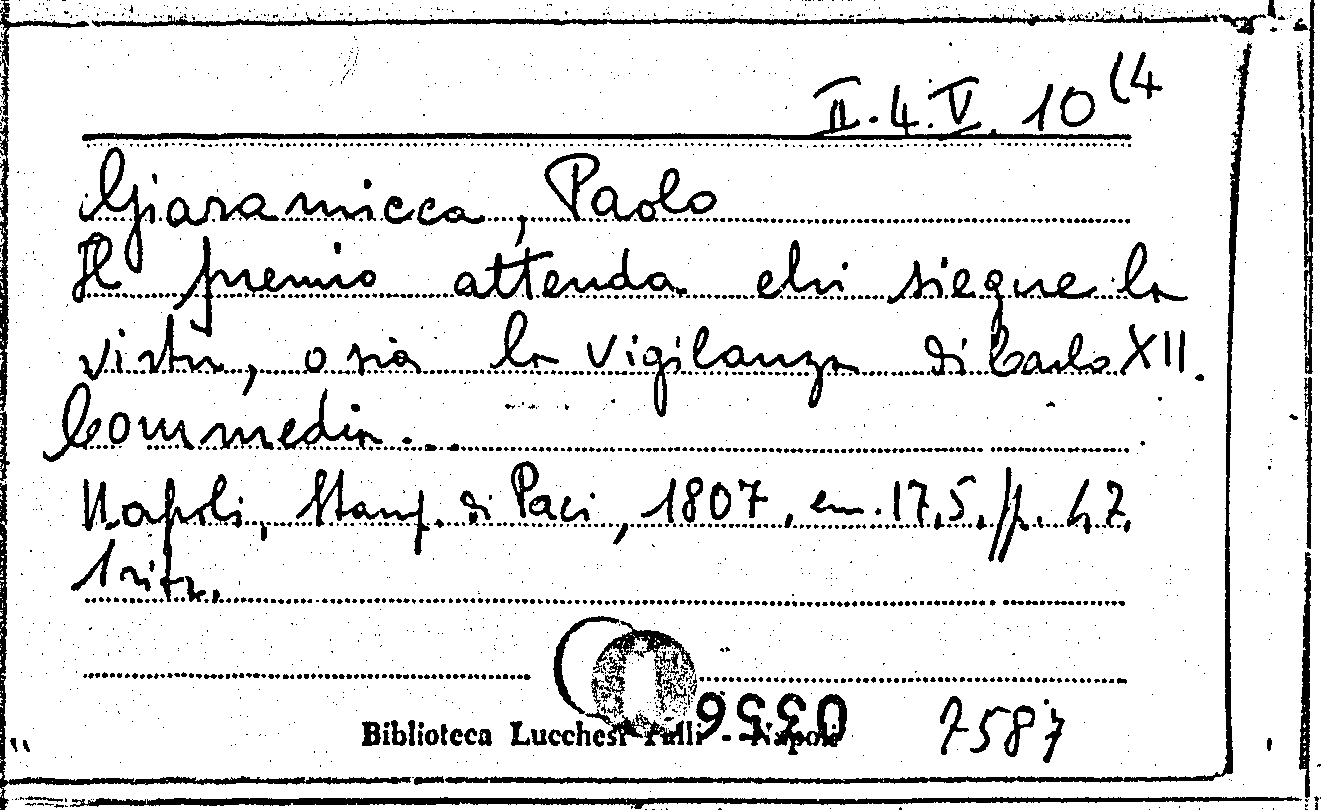 II.4.V. 10(4
Giaramicca, Paolo
Il premio attenda chi siegue la
virtù, o sia la vigilanza di Carlo XII.
Commedia...
Napoli, Stamp. di Paci, 1807, cm. 17,5. // p. 47.
1 ritr.
Biblioteca Lucchesi Palli - Napoli 7587